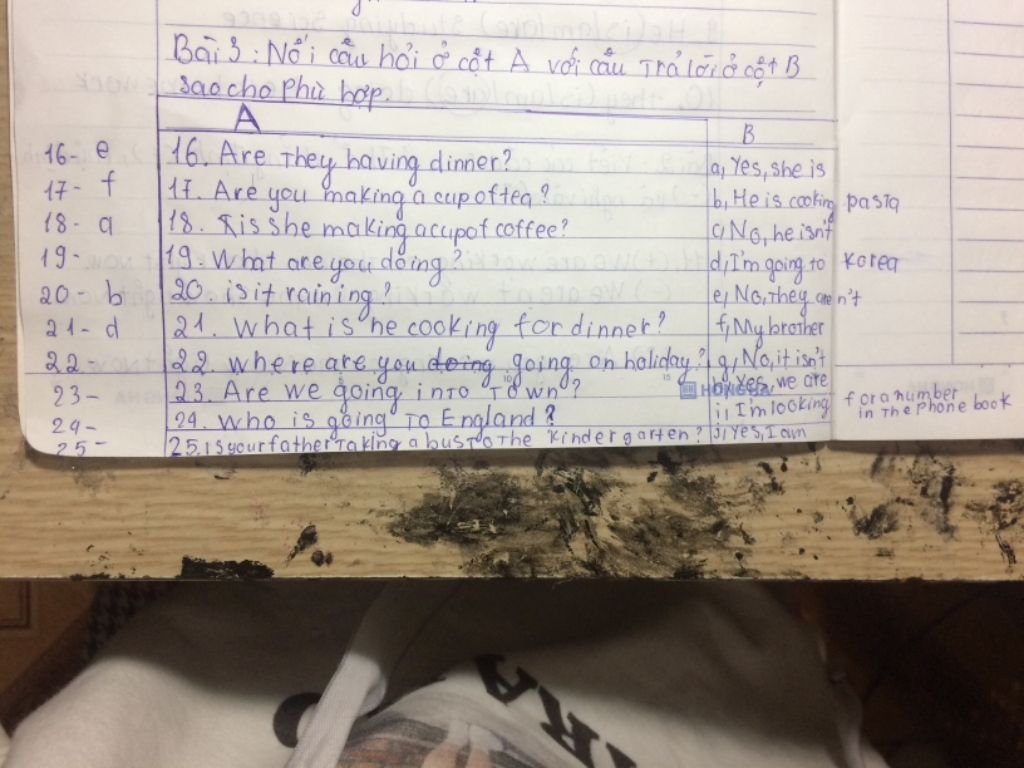 Bài 3: Nối câu hỏi ở cột A với câu trả lời ở cột B
sao cho phù hợp.
A
B
16- e
16. Are They having dinner?
a, Yes, she is
17- f
17. Are you making a cup of tea?
b, He is cooking pasta
18- a
18. is she making a cup of coffee?
c, No, he isn't
19-
19. What are you doing?
d, I'm going to Korea
20- b
20. is it raining?
e, No, they aren't
21- d
21. What is he cooking for dinner?
f, My brother
22-
22. where are you doing going on holiday?
g, No, it isn't
23-
23. Are we going into Town?
h, Yes, we are
HONG HA
24-
24. Who is going To England?
i, I'm looking for a number
in The phone book
25-
25. is your father Taking a bus To The kindergarten?
j, Yes, I am